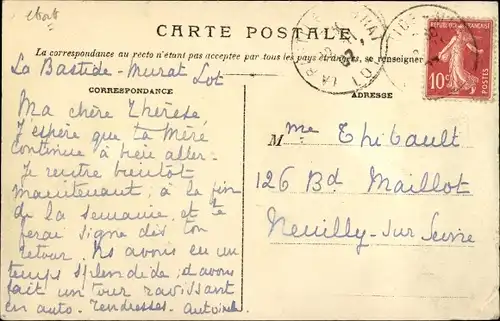 CARTE POSTALE
La correspondance au recto n'étant pas acceptée par tous les pays étrangers, se renseigner
RÉPUBLIQUE FRANÇAISE
10c
POSTES
La Bastide-Murat Lot
CORRESPONDANCE
ADRESSE
Ma chère Thérèse,
J'espère que ta Mère
continue à bien aller.
Je rentre bientôt
maintenant, à la fin
de la semaine, et te
ferai signe dès ton
retour. Ns avons eu un
temps splendide, et avons
fait un tour ravissant
en auto. Tendresses. Antoinette
Mme Thibault
126 Bd Maillot
Neuilly-sur Seine